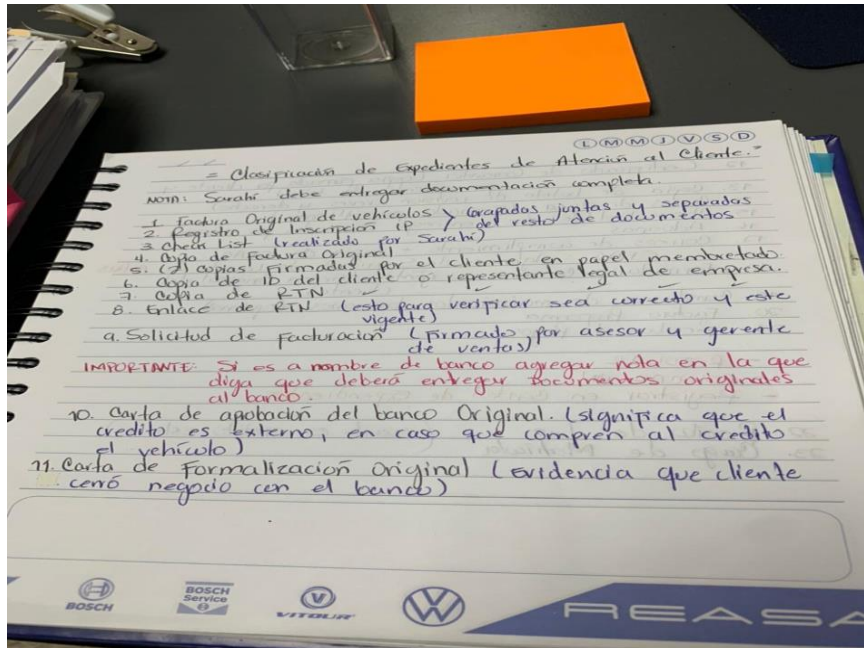 L M M J V S D
= Clasificación de Expedientes de Atención al Cliente."
NOTA: Sarahi debe entregar documentación completa.
1. Factura Original de vehículos } Grapadas juntas y separadas
2. Registro de Inscripción IP } del resto de documentos
3. Check List (realizado por Sarahi)
4. Copia de factura Original
5. (2) copias firmadas por el cliente en papel membretado.
6. Copia de ID del cliente o representante legal de empresa.
7. Copia de RTN
8. Enlace de RTN (esto para verificar sea correcto y este
vigente)
9. Solicitud de facturación (firmado por asesor y gerente
de ventas)
IMPORTANTE: Si es a nombre de banco agregar nota en la que
diga que deberá entregar documentos originales
al banco.
10. Carta de apobación del banco Original. (significa que el
credito es externo, en caso que compren al credito
el vehículo)
11. Carta de Formalización Original (Evidencia que cliente
cerró negocio con el banco)
BOSCH
BOSCH
Service
VITOUR
REASA